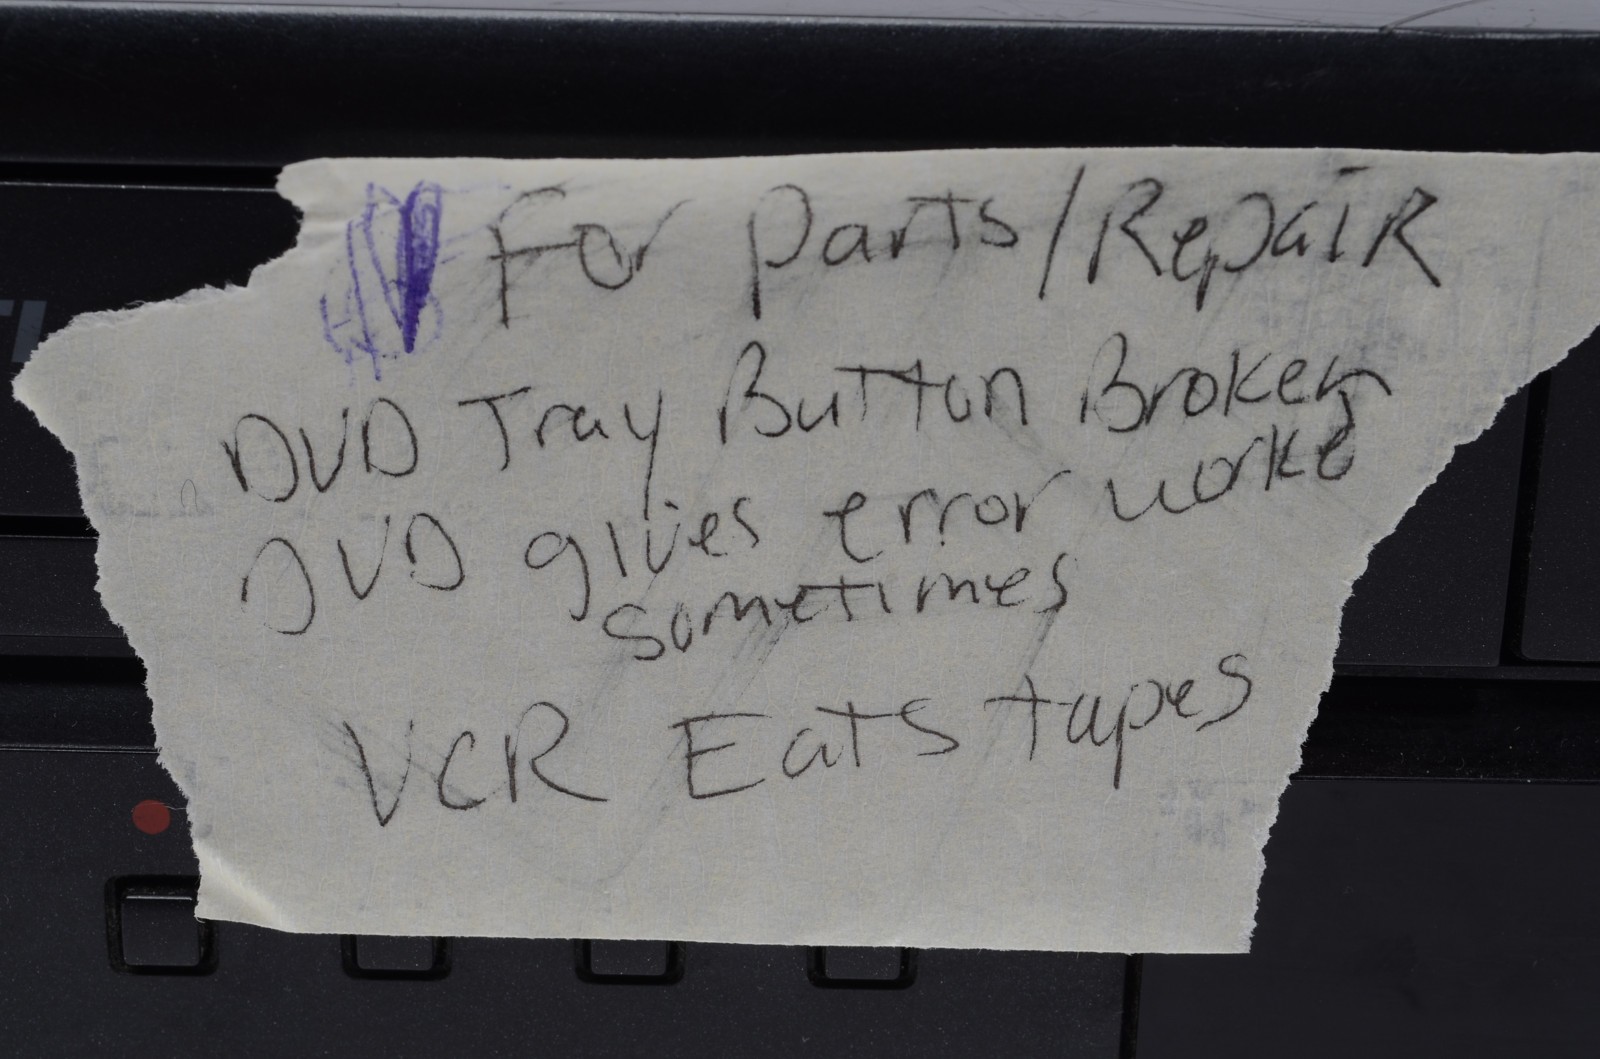 For Parts/Repair
DVD Tray Button Broken
DVD gives error works
sometimes
VCR Eats tapes